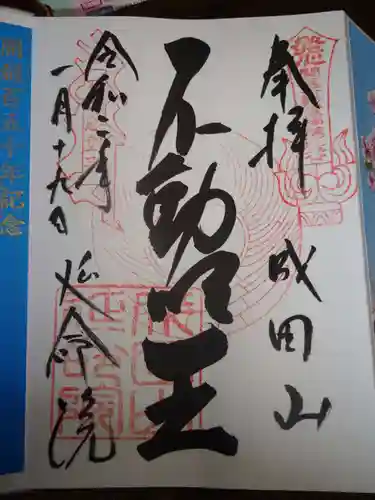 奉拝
成田山
不動明王
令和二年
一月十九日
延命院
開創百五十年記念